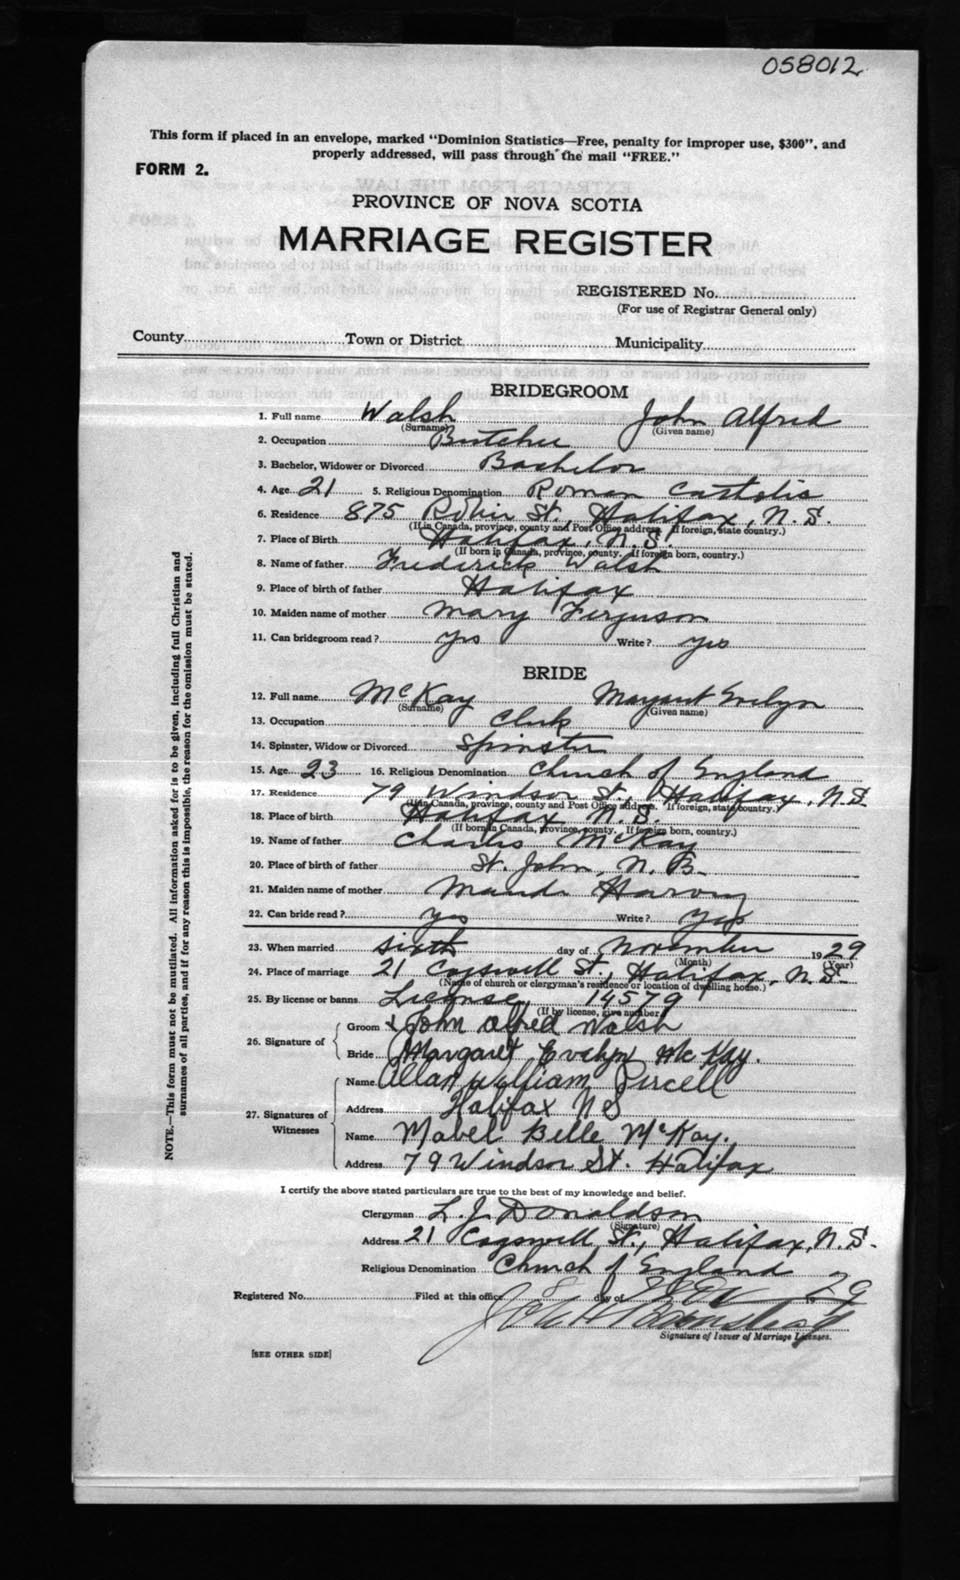 058012
This form if placed in an envelope, marked "Dominion Statistics—Free, penalty for improper use, $300", and
properly addressed, will pass through the mail "FREE."
FORM 2.
PROVINCE OF NOVA SCOTIA
MARRIAGE REGISTER
REGISTERED No.
(For use of Registrar General only)
County Town or District Municipality
BRIDEGROOM
1. Full name Walsh John Alfred
(Surname) (Given name)
2. Occupation Butcher
3. Bachelor, Widower or Divorced Bachelor
4. Age 21 5. Religious Denomination Roman Catholic
6. Residence 875 Robie St., Halifax, N.S.
(If in Canada, province, county and Post Office address. If foreign, state country.)
7. Place of Birth Halifax, N.S.
(If born in Canada, province, county. If foreign born, country.)
8. Name of father Frederick Walsh
9. Place of birth of father Halifax
10. Maiden name of mother Mary Ferguson
11. Can bridegroom read? yes Write? yes
BRIDE
12. Full name McKay Margaret Evelyn
(Surname) (Given name)
13. Occupation Clerk
14. Spinster, Widow or Divorced Spinster
15. Age 23 16. Religious Denomination Church of England
17. Residence 79 Windsor St., Halifax, N.S.
(If in Canada, province, county and Post Office address. If foreign, state country.)
18. Place of birth Halifax N.S.
(If born in Canada, province, county. If foreign born, country.)
19. Name of father Charles McKay
20. Place of birth of father St. John, N.B.
21. Maiden name of mother Maude Harvey
22. Can bride read? yes Write? yes
23. When married sixth day of November 1929
(Month) (Year)
24. Place of marriage 21 Cogswell St., Halifax, N.S.
(Name of church or clergyman's residence or location of dwelling house.)
25. By license or banns License, 14579
(If by license, give number)
26. Signature of Groom x John Alfred Walsh
Bride Margaret Evelyn McKay.
27. Signatures of Witnesses
Name Allan William Purcell
Address Halifax N S
Name Mabel Belle McKay.
Address 79 Windsor St. Halifax
I certify the above stated particulars are true to the best of my knowledge and belief.
Clergyman L. J. Donaldson
(Signature)
Address 21 Cogswell St., Halifax, N.S.
Religious Denomination Church of England
Registered No. Filed at this office 8 day of Nov 29
Signature of Issuer of Marriage Licenses.
[SEE OTHER SIDE]
NOTE.—This form must not be mutilated. All information asked for is to be given, including full Christian and
surnames of all parties, and if for any reason this is impossible, the reason for the omission must be stated.